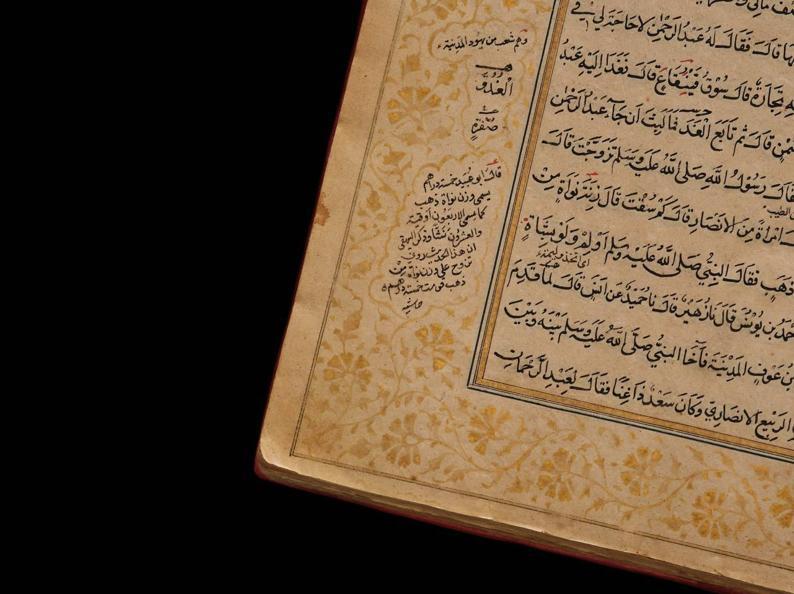 فقال له عبد الرحمن لا حاجة لي في
تجارة قال سوق قينقاع قال فغدا اليه عبد
قال ثم تابع الغد فما لبث ان جاء عبد الرحمن
رسول الله صلى الله عليه وسلم تزوجت قال
امراة من الانصار قال كم سقت قال زنة نواة من
ذهب فقال النبي صلى الله عليه وسلم اولم ولو بشاة
بن يونس قال نا زهير قال نا حميد عن انس قال لما قدم
بن عوف المدينة فآخا النبي صلى الله عليه وسلم بينه وبين
الربيع الانصاري وكان سعد ذا غنا فقال لعبد الرحمان
وهم شعب من يهود المدينة
الغدو
صفرة
قال ابو عبيد خمسة دراهم
يسمى وزن نواة ذهب
كما يسمى الاربعون اوقية
والعشرون نشا وذكر البيهقي
ان هذا الحديث روي
على وزن نواة من
ذهب قومت خمسة دراهم
حاشية